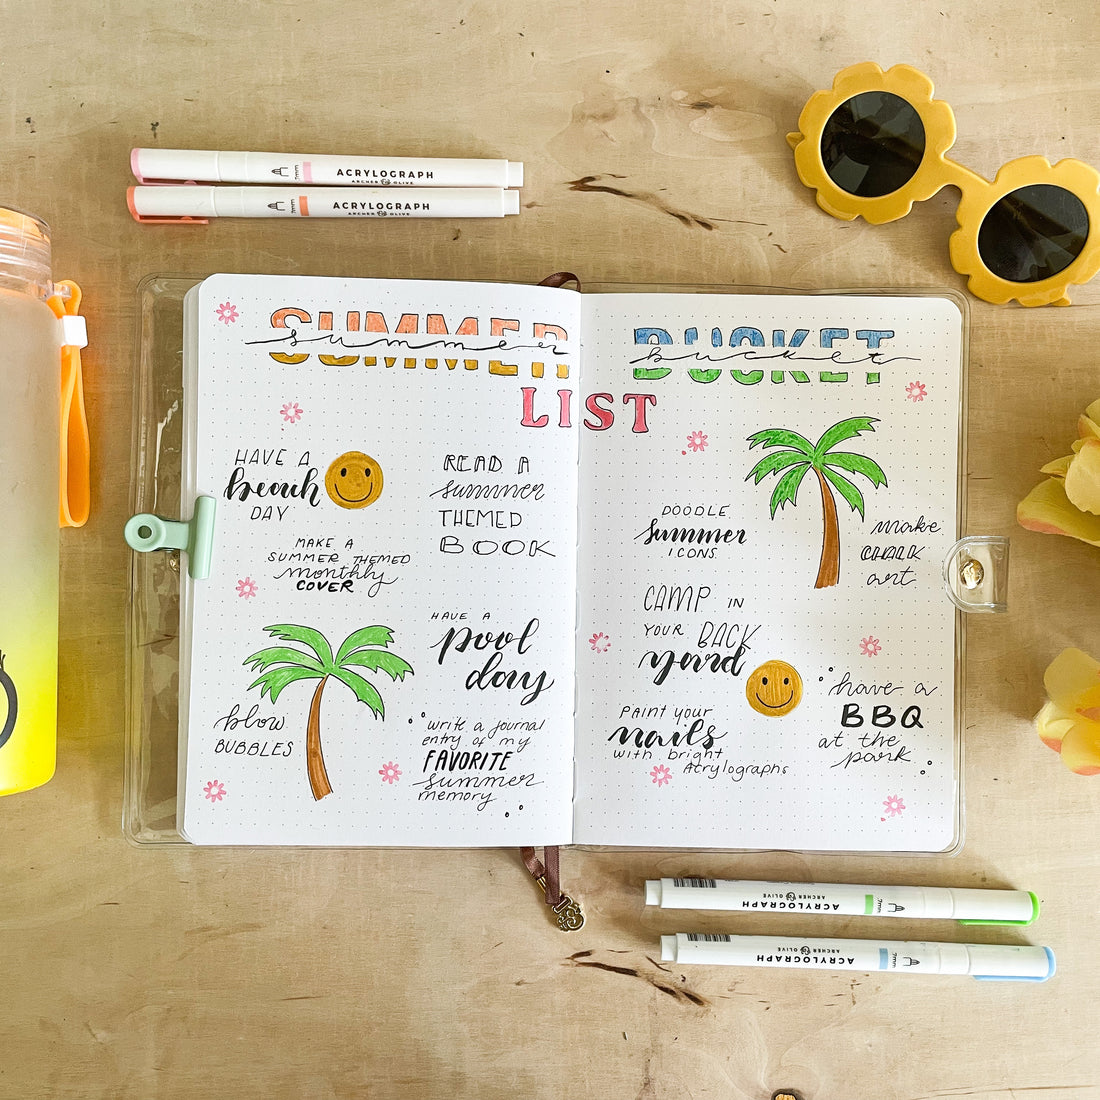 ACRYLOGRAPH
ARCHER & OLIVE
ACRYLOGRAPH
ARCHER & OLIVE
SUMMER
summer
BUCKET
bucket
LIST
HAVE A
beach
DAY
READ A
summer
THEMED
BOOK
MAKE A
SUMMER THEMED
monthly
COVER
HAVE A
pool
day
blow
BUBBLES
write a journal
entry of my
FAVORITE
summer
memory
DOODLE
summer
ICONS
make
CHALK
art
CAMP IN
YOUR BACK
yard
PAINT your
nails
with bright
Acrylographs
have a
BBQ
at the
park
ACRYLOGRAPH
ARCHER & OLIVE
ACRYLOGRAPH
ARCHER & OLIVE